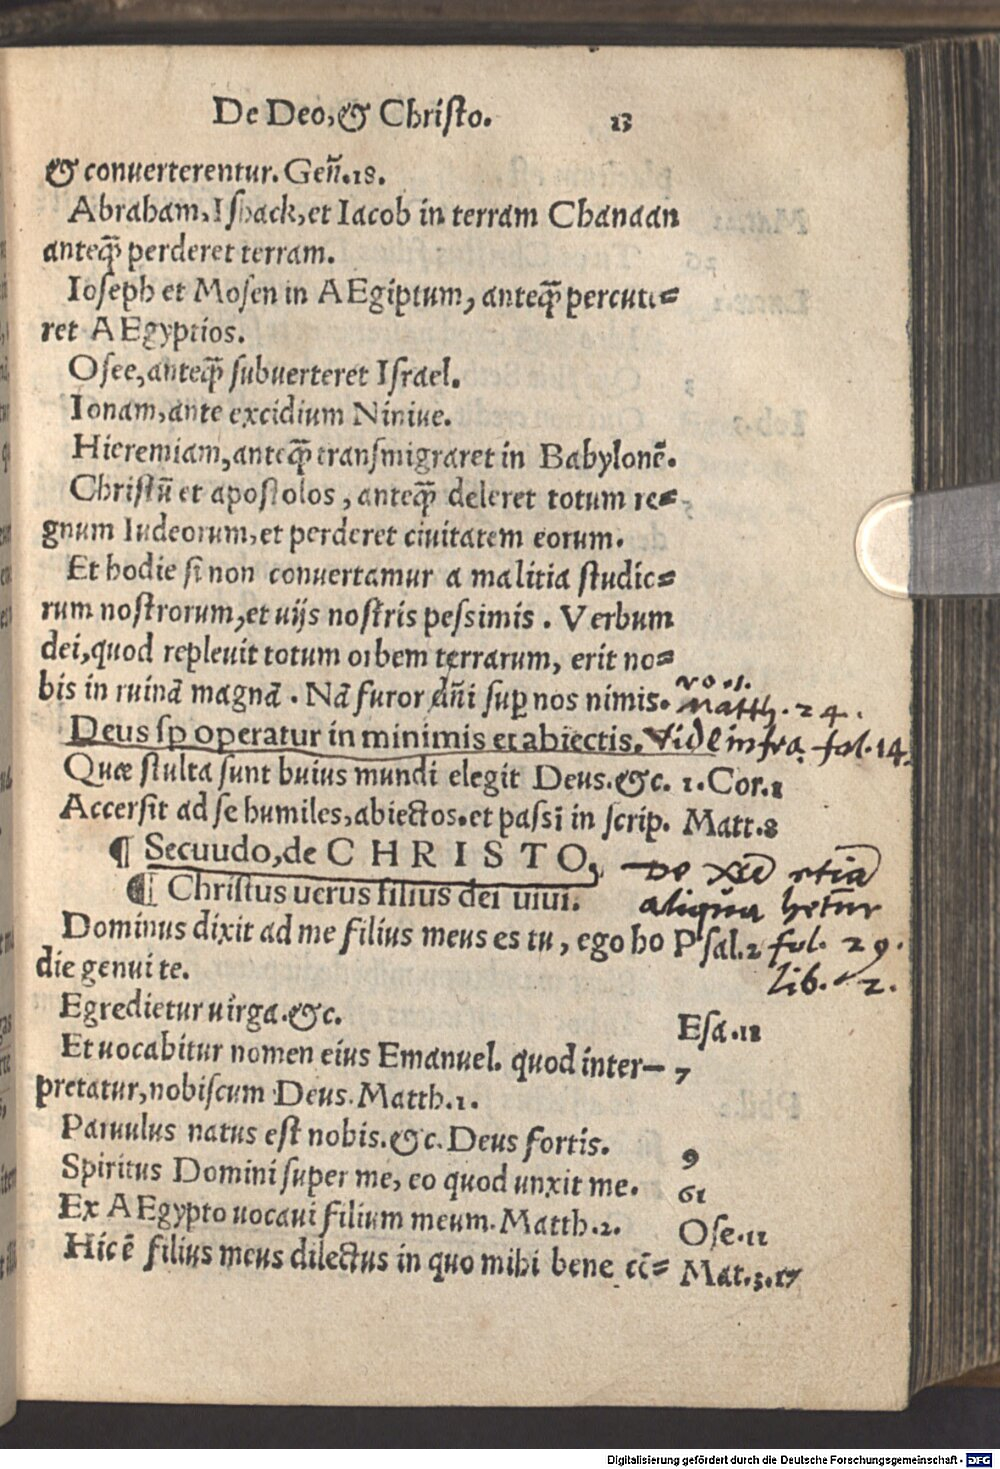 De Deo, & Christo. 13
& conuerterentur. Geñ.18.
Abraham, Ishack, et Iacob in terram Chanaan
anteq̃ perderet terram.
Ioseph et Mosen in AEgiptum, anteq̃ percuti=
ret AEgyptios.
Osee, anteq̃ subuerteret Israel.
Ionam, ante excidium Niniue.
Hieremiam, anteq̃ transmigraret in Babylonẽ.
Christũ et apostolos, anteq̃ deleret totum re=
gnum Iudeorum, et perderet ciuitatem eorum.
Et hodie si non conuertamur a malitia studio=
rum nostrorum, et uijs nostris pessimis. Verbum
dei, quod repleuit totum orbem terrarum, erit no=
bis in ruinã magnã. Nã furor dñi suꝑ nos nimis. Matth. 24.
Deus sp operatur in minimis et abiectis. Vide infra fol. 14.
Quæ stulta sunt huius mundi elegit Deus. &c. 1. Cor.1
Accersit ad se humiles, abiectos. et passĩ in scrip. Matt.8
¶ Secuudo, de CHRISTO,
¶ Christus uerus filius dei uiui. aliqua
Dominus dixit ad me filius meus es tu, ego ho Psal.2 fol. 29.
die genui te. lib. 2.
Egredietur uirga. &c. Esa.11
Et uocabitur nomen eius Emanuel. quod inter- 7
pretatur, nobiscum Deus. Matth.1.
Paruulus natus est nobis. &c. Deus fortis. 9
Spiritus Domini super me, eo quod unxit me. 61
Ex AEgypto uocaui filium meum. Matth.2. Ose.11
Hic ẽ filius meus dilectus in quo mihi bene cõ= Mat.3.17
Digitalisierung gefördert durch die Deutsche Forschungsgemeinschaft - DFG